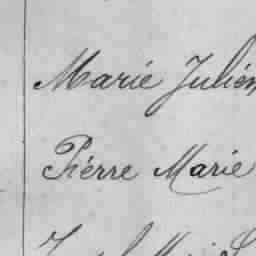 Marie Julien
Piérre Marie